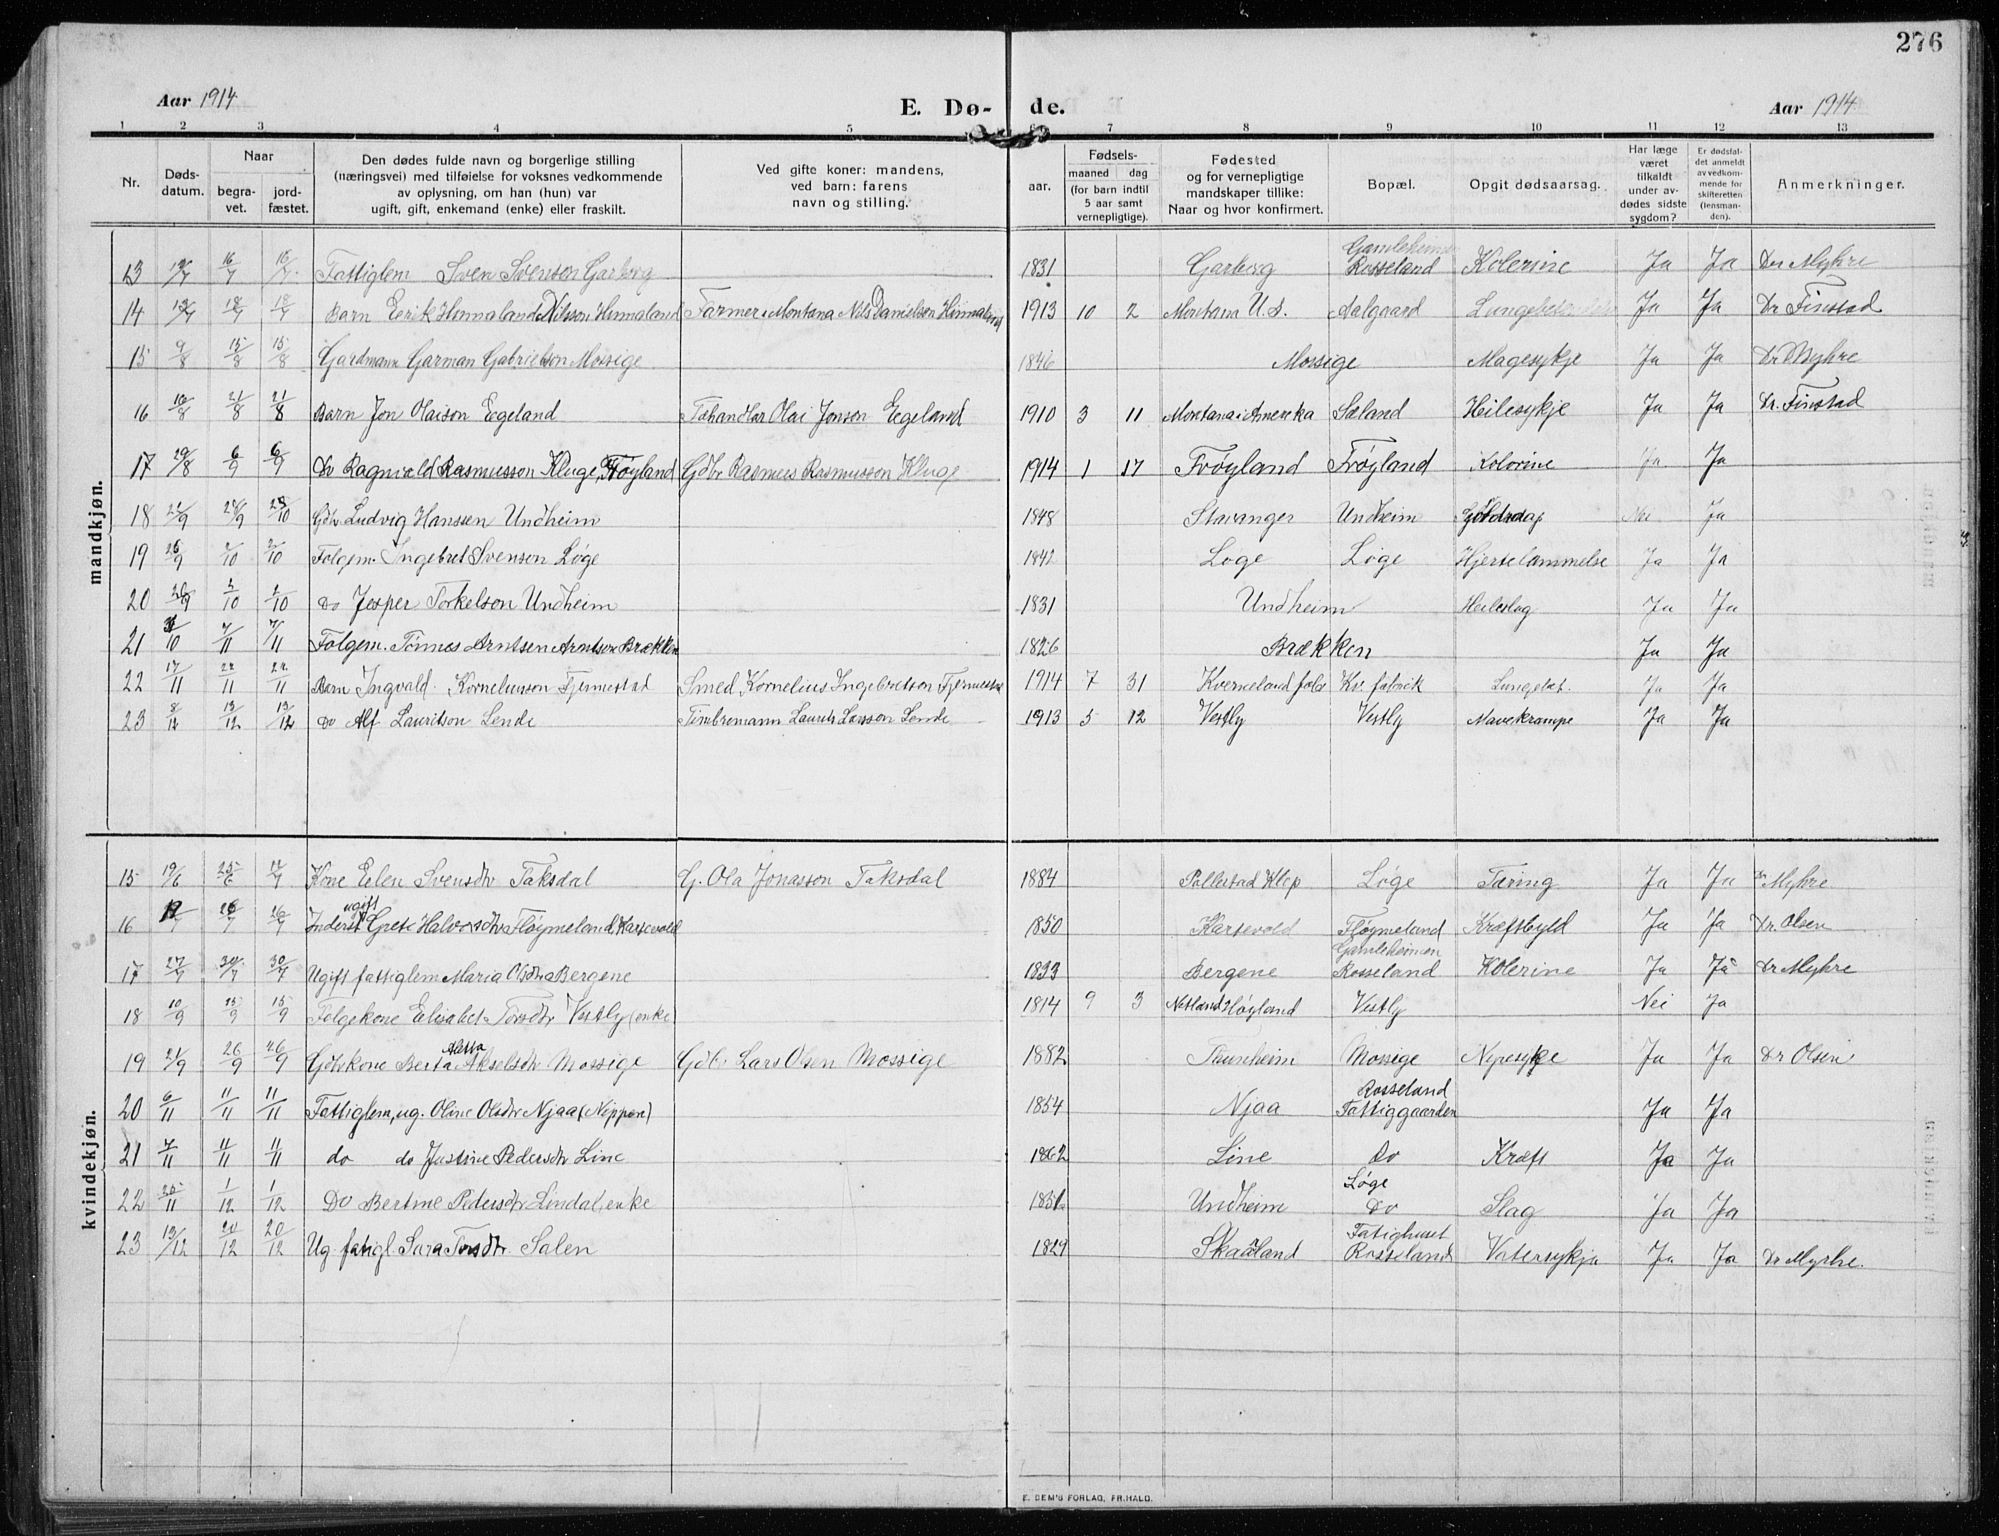 276
Aar 1914
E. Dø- de.
Aar 1914
1 2 3 4 5 6 7 8 9 10 11 12 13
Nr.
Døds-
datum.
Naar
begra-
vet.
jord-
fæstet.
Den dødes fulde navn og borgerlige stilling
(næringsvei) med tilføielse for voksnes vedkommende
av oplysning, om han (hun) var
ugift, gift, enkemand (enke) eller fraskilt.
Ved gifte koner: mandens,
ved barn: farens
navn og stilling.
aar.
Fødsels-
maaned dag
(for barn indtil
5 aar samt
vernepligtige).
Fødested
og for vernepligtige
mandskaper tillike:
Naar og hvor konfirmert.
Bopæl.
Opgit dødsaarsag.
Har læge
været
tilkaldt
under av-
dødes sidste
sygdom?
Er dødsfal-
det anmeldt
av vedkom-
mende for
skifteretten
(lensman-
den).
Anmerkninger.
mandkjøn.
Gamleheimen
13 16/7 16/7 Fattiglem Sven Svenson Garberg 1831 Garberg Rosseland Kolerine Ja Ja Dr Myhre
14 18/7 18/7 Barn Eerik Hennaland Nilsson Hinnaland Farmer i Montana Nils Danielsen Hinnaland 1913 10 2 Montana U.S. Aalgaard Ja Ja Dr Finstad
15 9/8 15/8 15/8 Gardmann Garman Gabrielson Mossige 1846 Mossige Magesykje Ja Ja Dr Myhre
16 16/8 21/8 21/8 Barn Jon Olaison Eegeland Olai Jonson Eegeland 1910 3 11 Montana i Amerika Sæland Heilesykje Ja Ja Dr. Finstad
17 29/8 6/9 6/9 Do Ragnvald Rasmusson Kluge, Frøyland Gdbr Rasmus Rasmusson Kluge 1914 1 17 Frøyland Frøyland Kolorine Ja Ja
18 /9 /9 /10 Gdbr Ludvig Hanssen Undheim 1848 Stavanger Undheim Nei Ja
19 26/9 2/10 2/10 Folgem. Ingebret Svenson Løge 1842 Løge Løge Hjertelammelse Ja Ja
20 26/9 2/10 2/10 Do Jesper Torkelson Undheim 1831 Undheim Heileslag Ja Ja
21 31/10 7/11 7/11 Folgem. Tønnes Arntsen Arntson Brækken 1826 Brækken Ja Ja
22 17/11 22/11 22/11 Barn Ingvald Korneliusson Fjermestad Smed Kornelius Ingebretson Fjermestad 1914 7 31 Kverneland fabr Kv. fabrik Lungebet. Ja Ja
23 8/12 13/12 13/12 Do Alf Lauritson Lende Timbremann Laurits Larsson Lende 1913 5 12 Vestly Vestly Mavekrampe Ja Ja
kvindekjøn.
15 19/6 25/6 /7 Kone Eelen Svensdtr Taksdal G. Ola Jonasson Taksdal 1884 Pollestad Klep Løge Tæring Ja Ja Dr Myhre
ugift
16 /7 26/7 26/7 Inderst Grete Halvorsdtr Fløymeland, Karsevold 1850 Karsevold Fløymeland Kræftbyld Ja Ja Dr. Olsen
Gamleheimen
17 27/7 30/7 30/7 Ugift fattiglem Maria Olsdtr Bergene 1833 Bergene Rosseland Kolerine Ja Ja Dr Myhre
18 10/9 15/9 15/9 Folgekone Eelisabet Torsdtr Vestly (enke) 1814 9 3 Netland Høyland Vestly Nei Ja
Aletta
19 21/9 26/9 26/9 Gdbrkone Berta Akselsdtr Mossige Gdb. Lars Olsen Mossige 1882 Tunheim Mossige Nyresyke Ja Ja Dr Olsen
Rosseland
20 6/11 11/11 11/11 Fattiglem, ug. Oline Olsdtr Njaa (Nippen) 1854 Njaa Fattiggaarden Ja Ja
21 7/11 11/11 11/11 do do Justine Pedersdtr Line 1862 Line Do Kræft Ja Ja
Løge
22 25/11 1/12 1/12 Do Bertine Pedersdtr Lindal, enke Undheim Do Slag Ja Ja
Fatighuset
23 13/12 20/12 20/12 Ug. fatigl. Sara Torsdtr Salen 1829 Skaaland Rosseland Vatersykja Ja Ja Dr Myrhe.
E. DEM'S FORLAG, FR.HALD.